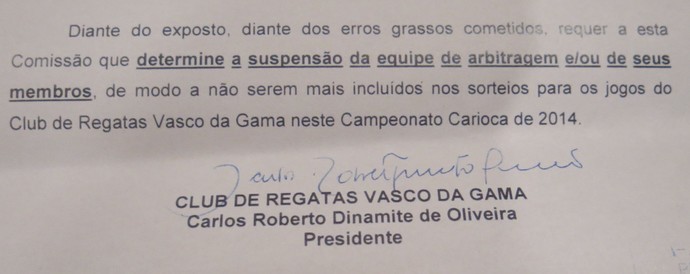 Diante do exposto, diante dos erros grassos cometidos, requer a esta
Comissão que determine a suspensão da equipe de arbitragem e/ou de seus
membros, de modo a não serem mais incluídos nos sorteios para os jogos do
Club de Regatas Vasco da Gama neste Campeonato Carioca de 2014.
CLUB DE REGATAS VASCO DA GAMA
Carlos Roberto Dinamite de Oliveira
Presidente